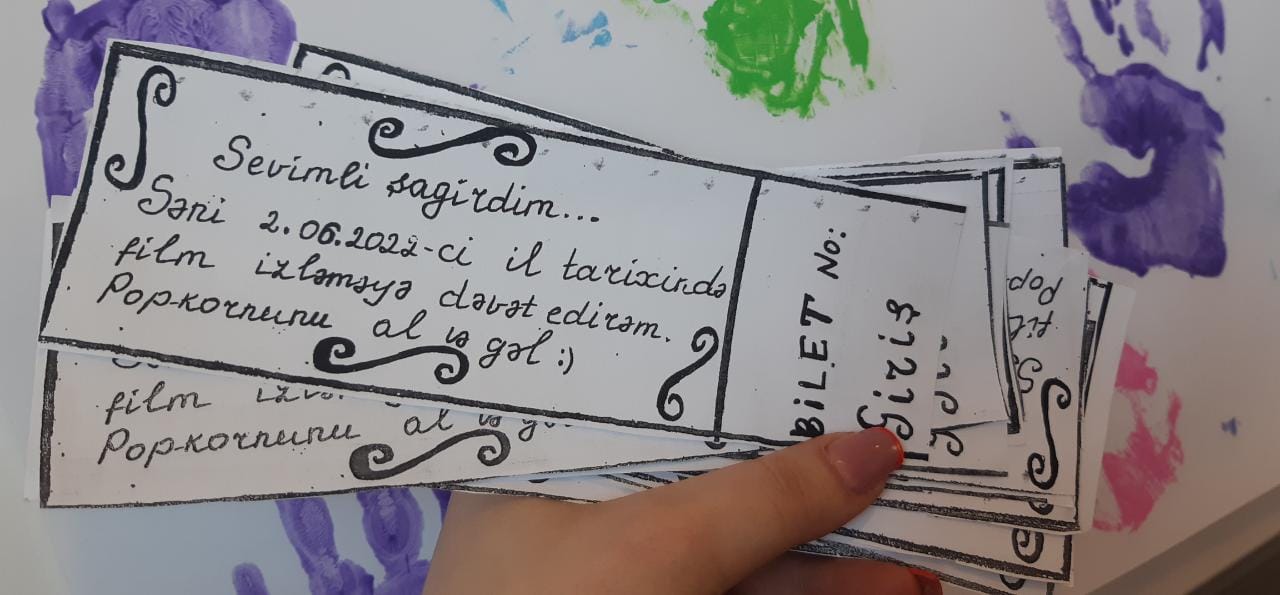 Sevimli şagirdim...
Səni 2.06.2022-ci il tarixində
film izləməyə dəvət edirəm.
Pop-kornunu al və gəl :)
BİLET No:
Giriş
film
Pop-kornunu al və
Pop